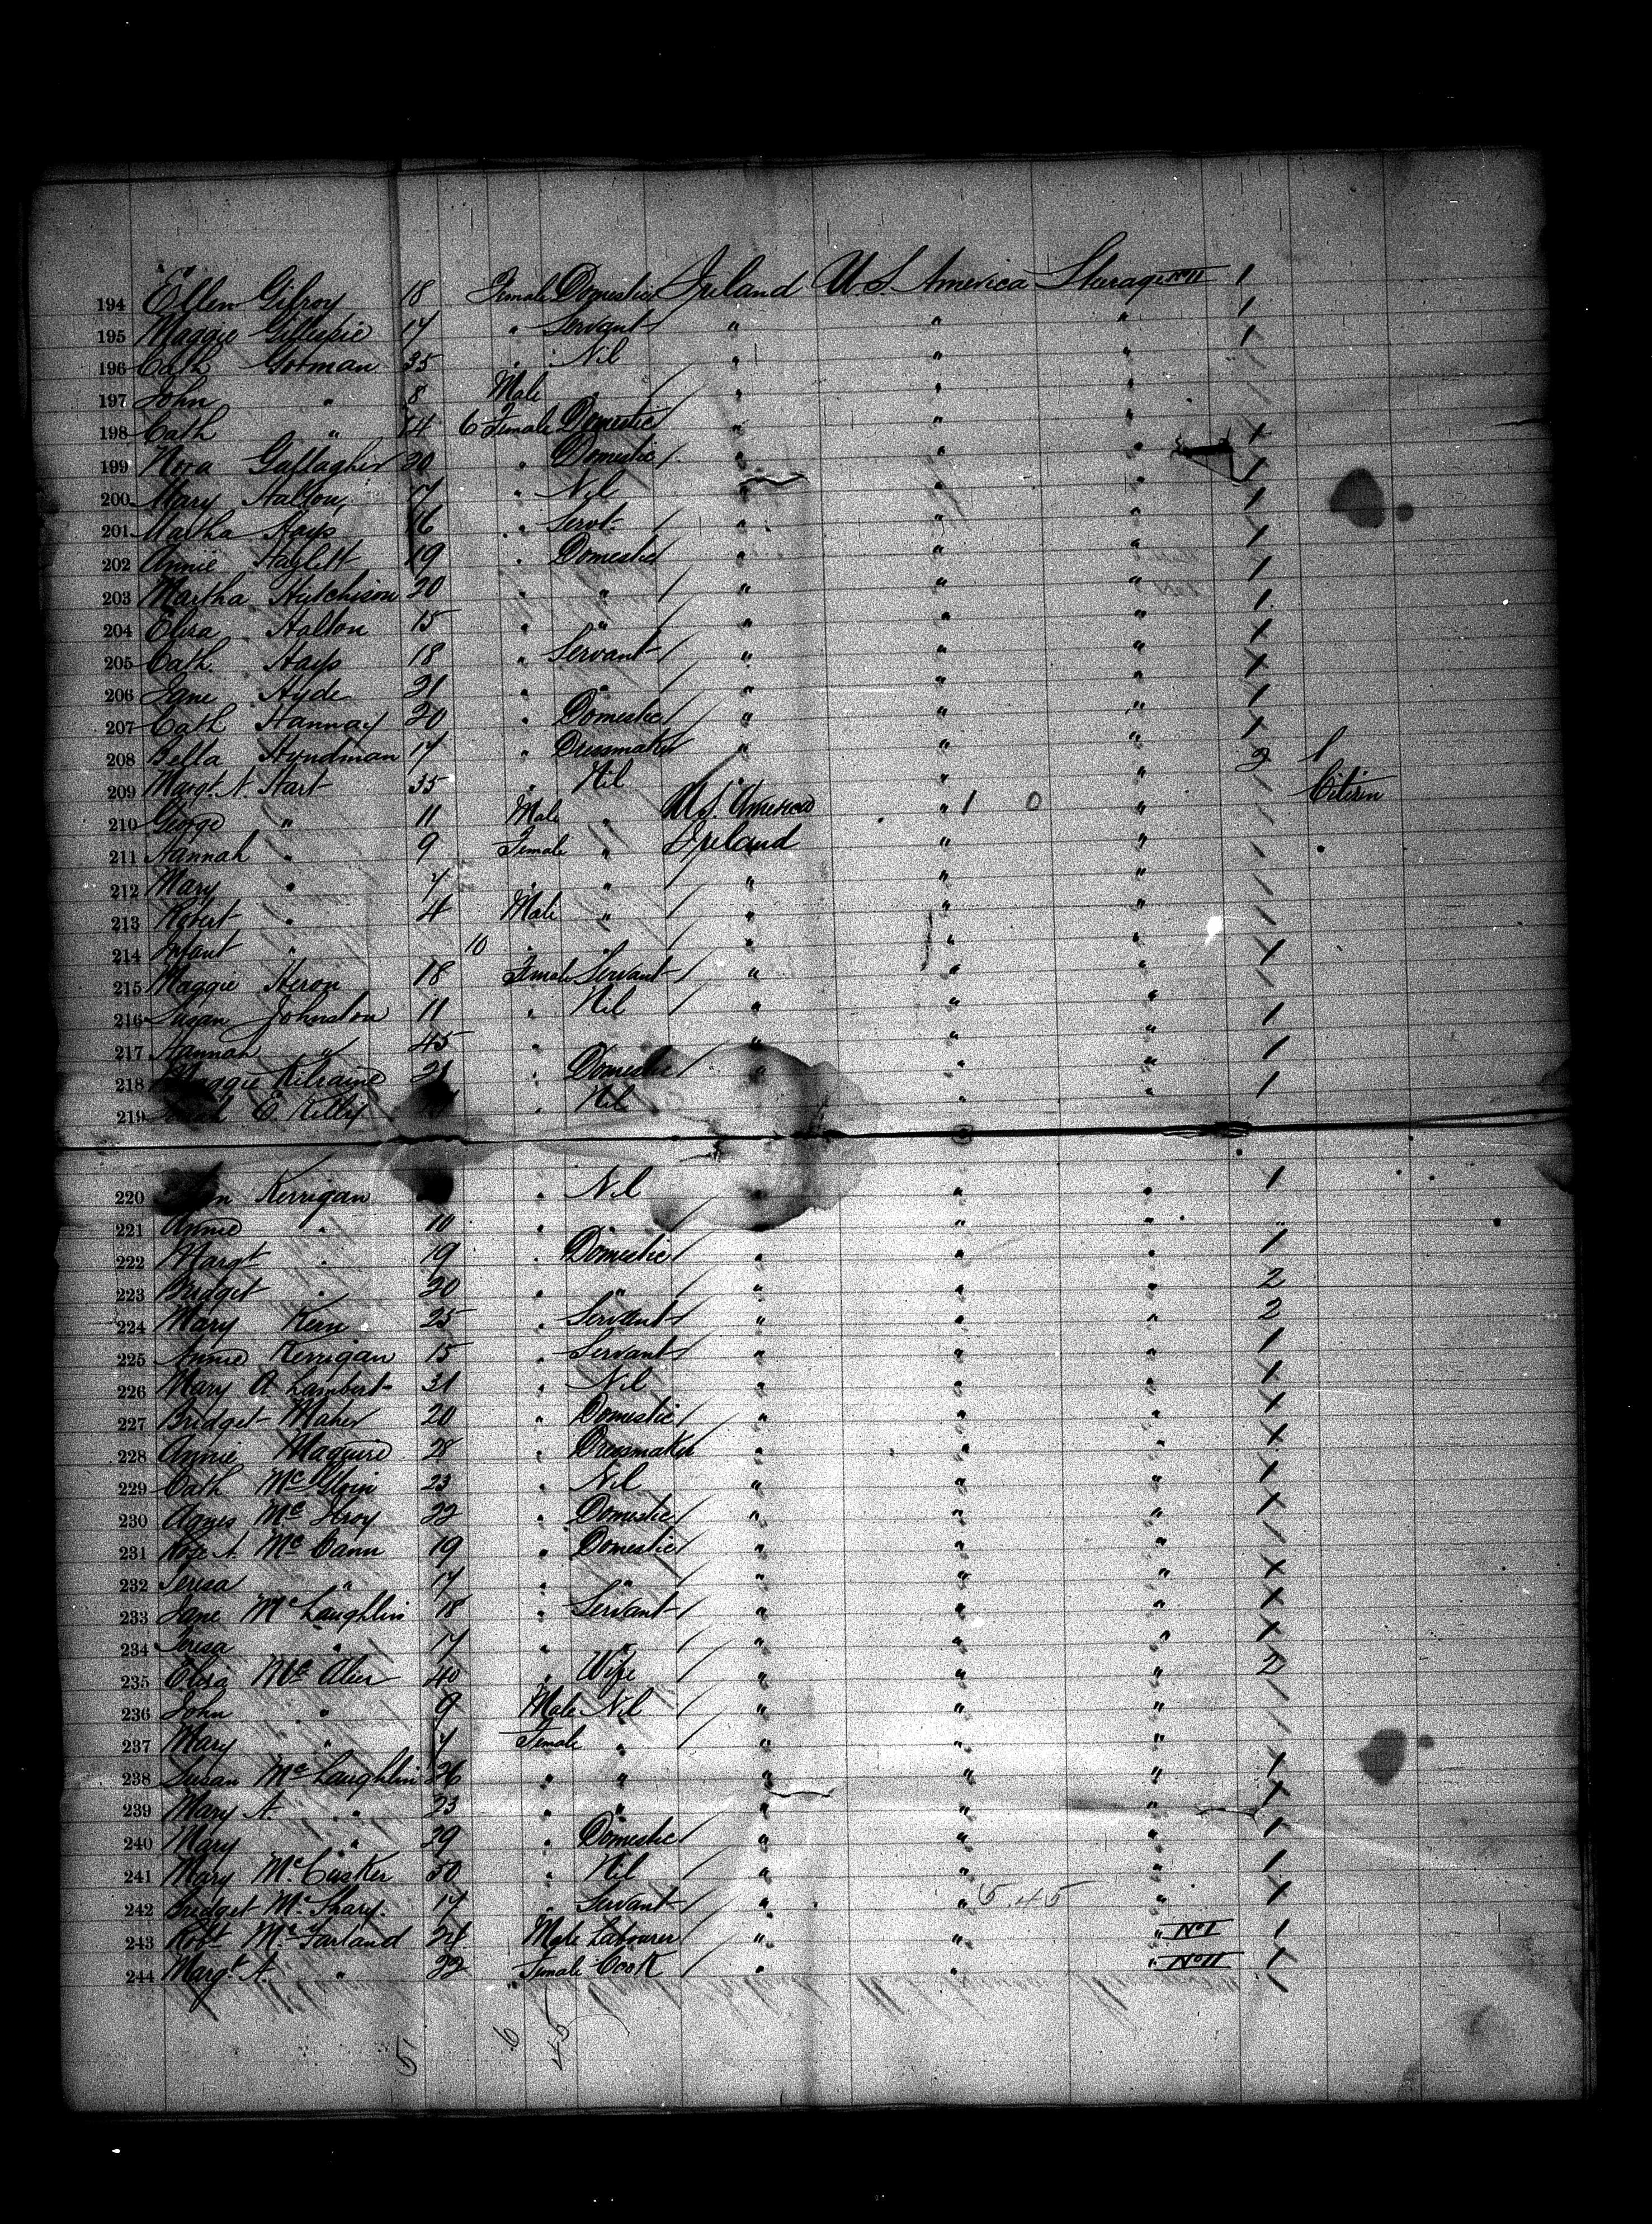 194 Ellen Gilroy 18 Female Domestic Ireland U.S. America Steerage No II 1
195 Maggie Gillespie 17 " Servant " " " 1
196 Cath Gorman 35 " Nil " " " 1
197 John " 8 Male " " " "
198 Cath " 6 Female Domestic " " "
199 Nora Gallagher 20 " Domestic " " " 1
200 Mary Halton 17 " Nil " " " 1
201 Martha Hays 16 " Servt. " " " 1
202 Annie Hazlett 19 " Domestic " " " 1
203 Martha Hutchison 20 " " " " " 1
204 Eliza Halton 15 " " " " " 1
205 Cath. Hays 18 " Servant " " " 1
206 Jane Hyde 21 " " " " " 1
207 Cath Hannay 20 " Domestic " " " 1
208 Bella Hyndman 17 " Dressmaker " " " 1
209 Margt. A. Hart 35 " Nil " " " 2 1
210 George " 11 Male " U.S. America " 1 0 " Citizen
211 Hannah " 9 Female " Ireland " "
212 Mary " 7 " " " " "
213 Robert " 4 Male " " " "
214 Infant " 10 " " " " "
215 Maggie Heron 18 Female Servant " " " 1
216 Susan Johnston 11 " Nil " " "
217 Hannah " 45 " " " " 1
218 Maggie Kilraine 21 " Domestic " " " 1
219 E. Kelly " Nil " " 1
220 Kerrigan " Nil " " 1
221 Annie " 10 " " "
222 Margt " 19 " Domestic " " " 1
223 Bridget " 20 " " " " " 2
224 Mary Kern 25 " Servant " " " 2
225 Annie Kerrigan 15 " Servant " " " 1
226 Mary A Lambert 31 " Nil " " " 1
227 Bridget Maher 20 " Domestic " " " 1
228 Annie Maguire 28 " Dressmaker " " " 1
229 Cath McGloin 23 " Nil " " " 1
230 Agnes McIlroy 22 " Domestic " " " 1
231 Rose A. McCann 19 " Domestic " " "
232 Teresa " 17 " " " " " 1
233 Jane McLaughlin 18 " Servant " " " 1
234 Teresa " 17 " " " " " 1
235 Eliza McAleer 40 " Wife " " " 2
236 John " 9 Male Nil " " "
237 Mary " 7 Female " " " "
238 Susan McLaughlin 26 " " " " " 1
239 Mary A. " 23 " " " " " 1
240 Mary " 29 " Domestic " " " 1
241 Mary McCusker 50 " Nil " " " 1
242 Bridget McSharry 17 " Servant " " 5.45 " 1
243 Robt McFarland 24 Male Labourer " " " No I 1
244 Margt. A. " 22 Female Cook " " " No II 1
5 6 45